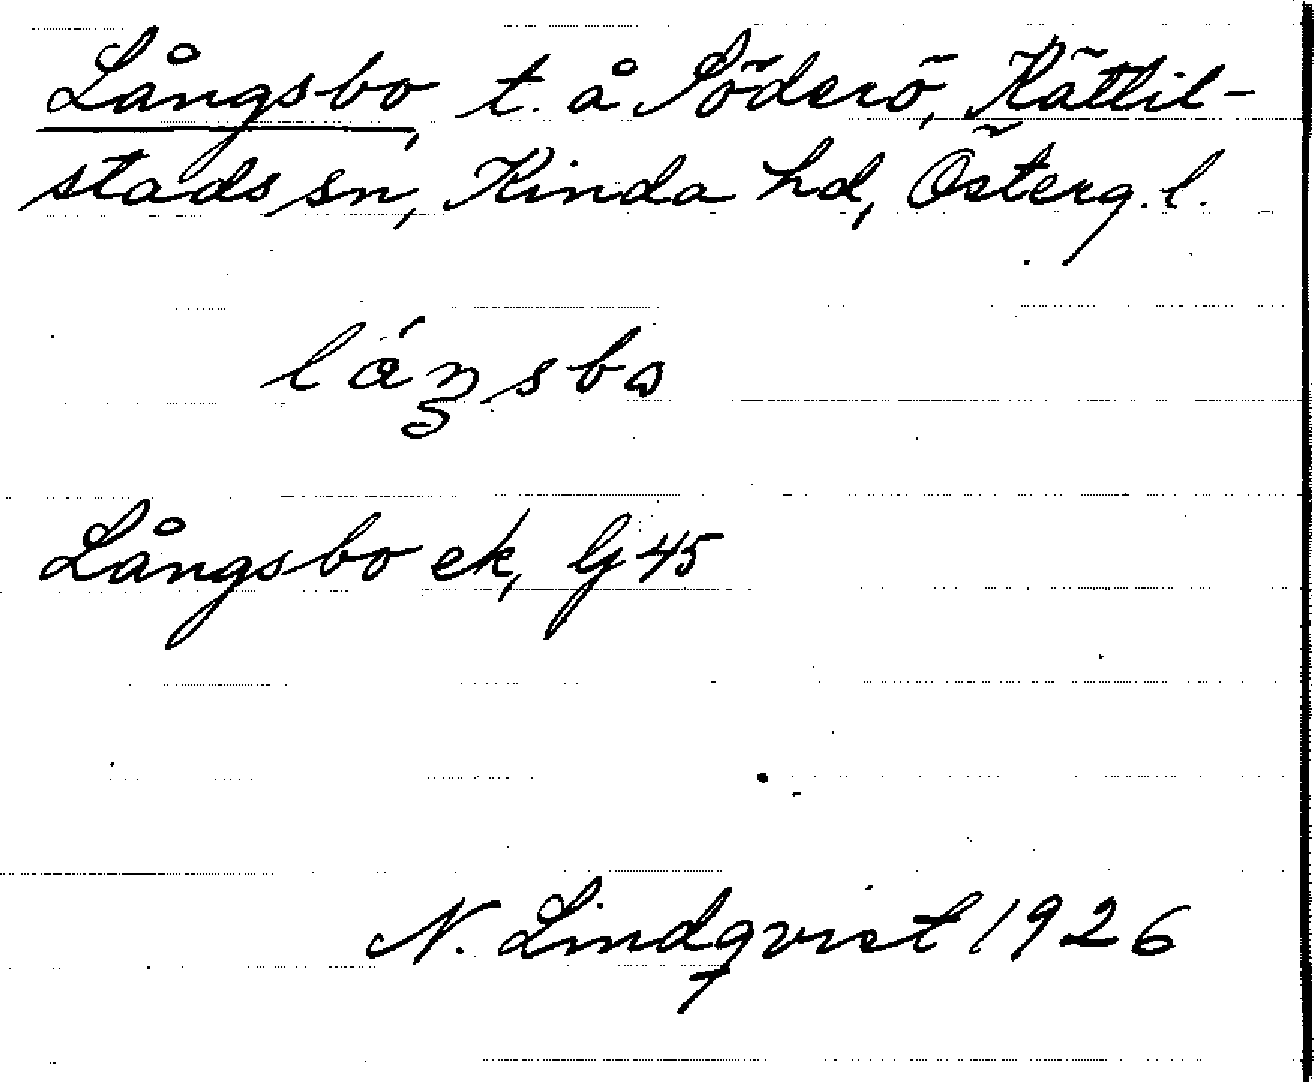 Långsbo, t. å Söderö, Kättil-
stads sn, Kinda hd, Österg. l.
lǻŋsbo
Långsbo ek, lj 45
N. Lindqvist 1926